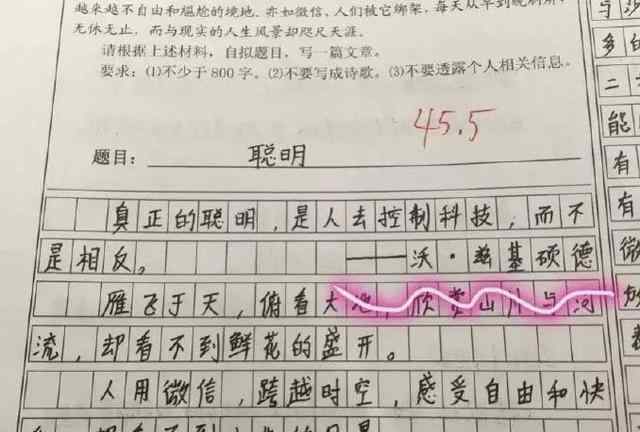 越来越不自由和尴尬的境地。亦如微信，人们被它绑架，每天从早到晚刷屏，
无休无止，而与现实的人生风景却咫尺天涯。
请根据上述材料，自拟题目，写一篇文章。
要求：(1)不少于 800 字。(2)不要写成诗歌。(3)不要透露个人相关信息。
45.5
题目：聪明
真正的聪明，是人去控制科技，而不
是相反。 ——沃·兹基硕德
雁飞于天，俯看大地，欣赏山川与河
流，却看不到鲜花的盛开。
人用微信，跨越时空，感受自由和快
与
多的
二
能
有
有
微